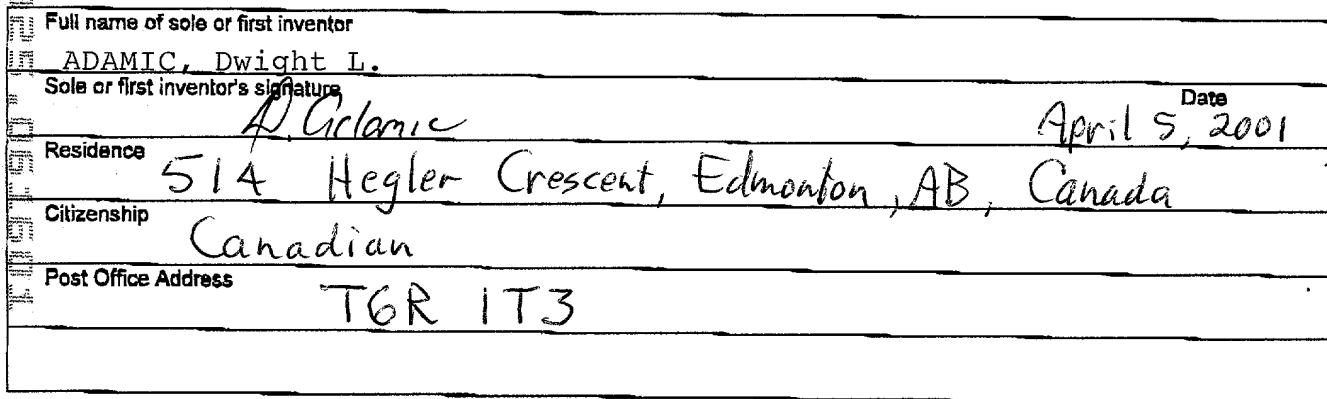 Full name of sole or first inventor
ADAMIC, Dwight L.
Sole or first inventor's signature
Date
D. Adamic
April 5, 2001
Residence
514 Hegler Crescent, Edmonton, AB, Canada
Citizenship
Canadian
Post Office Address
T6R 1T3